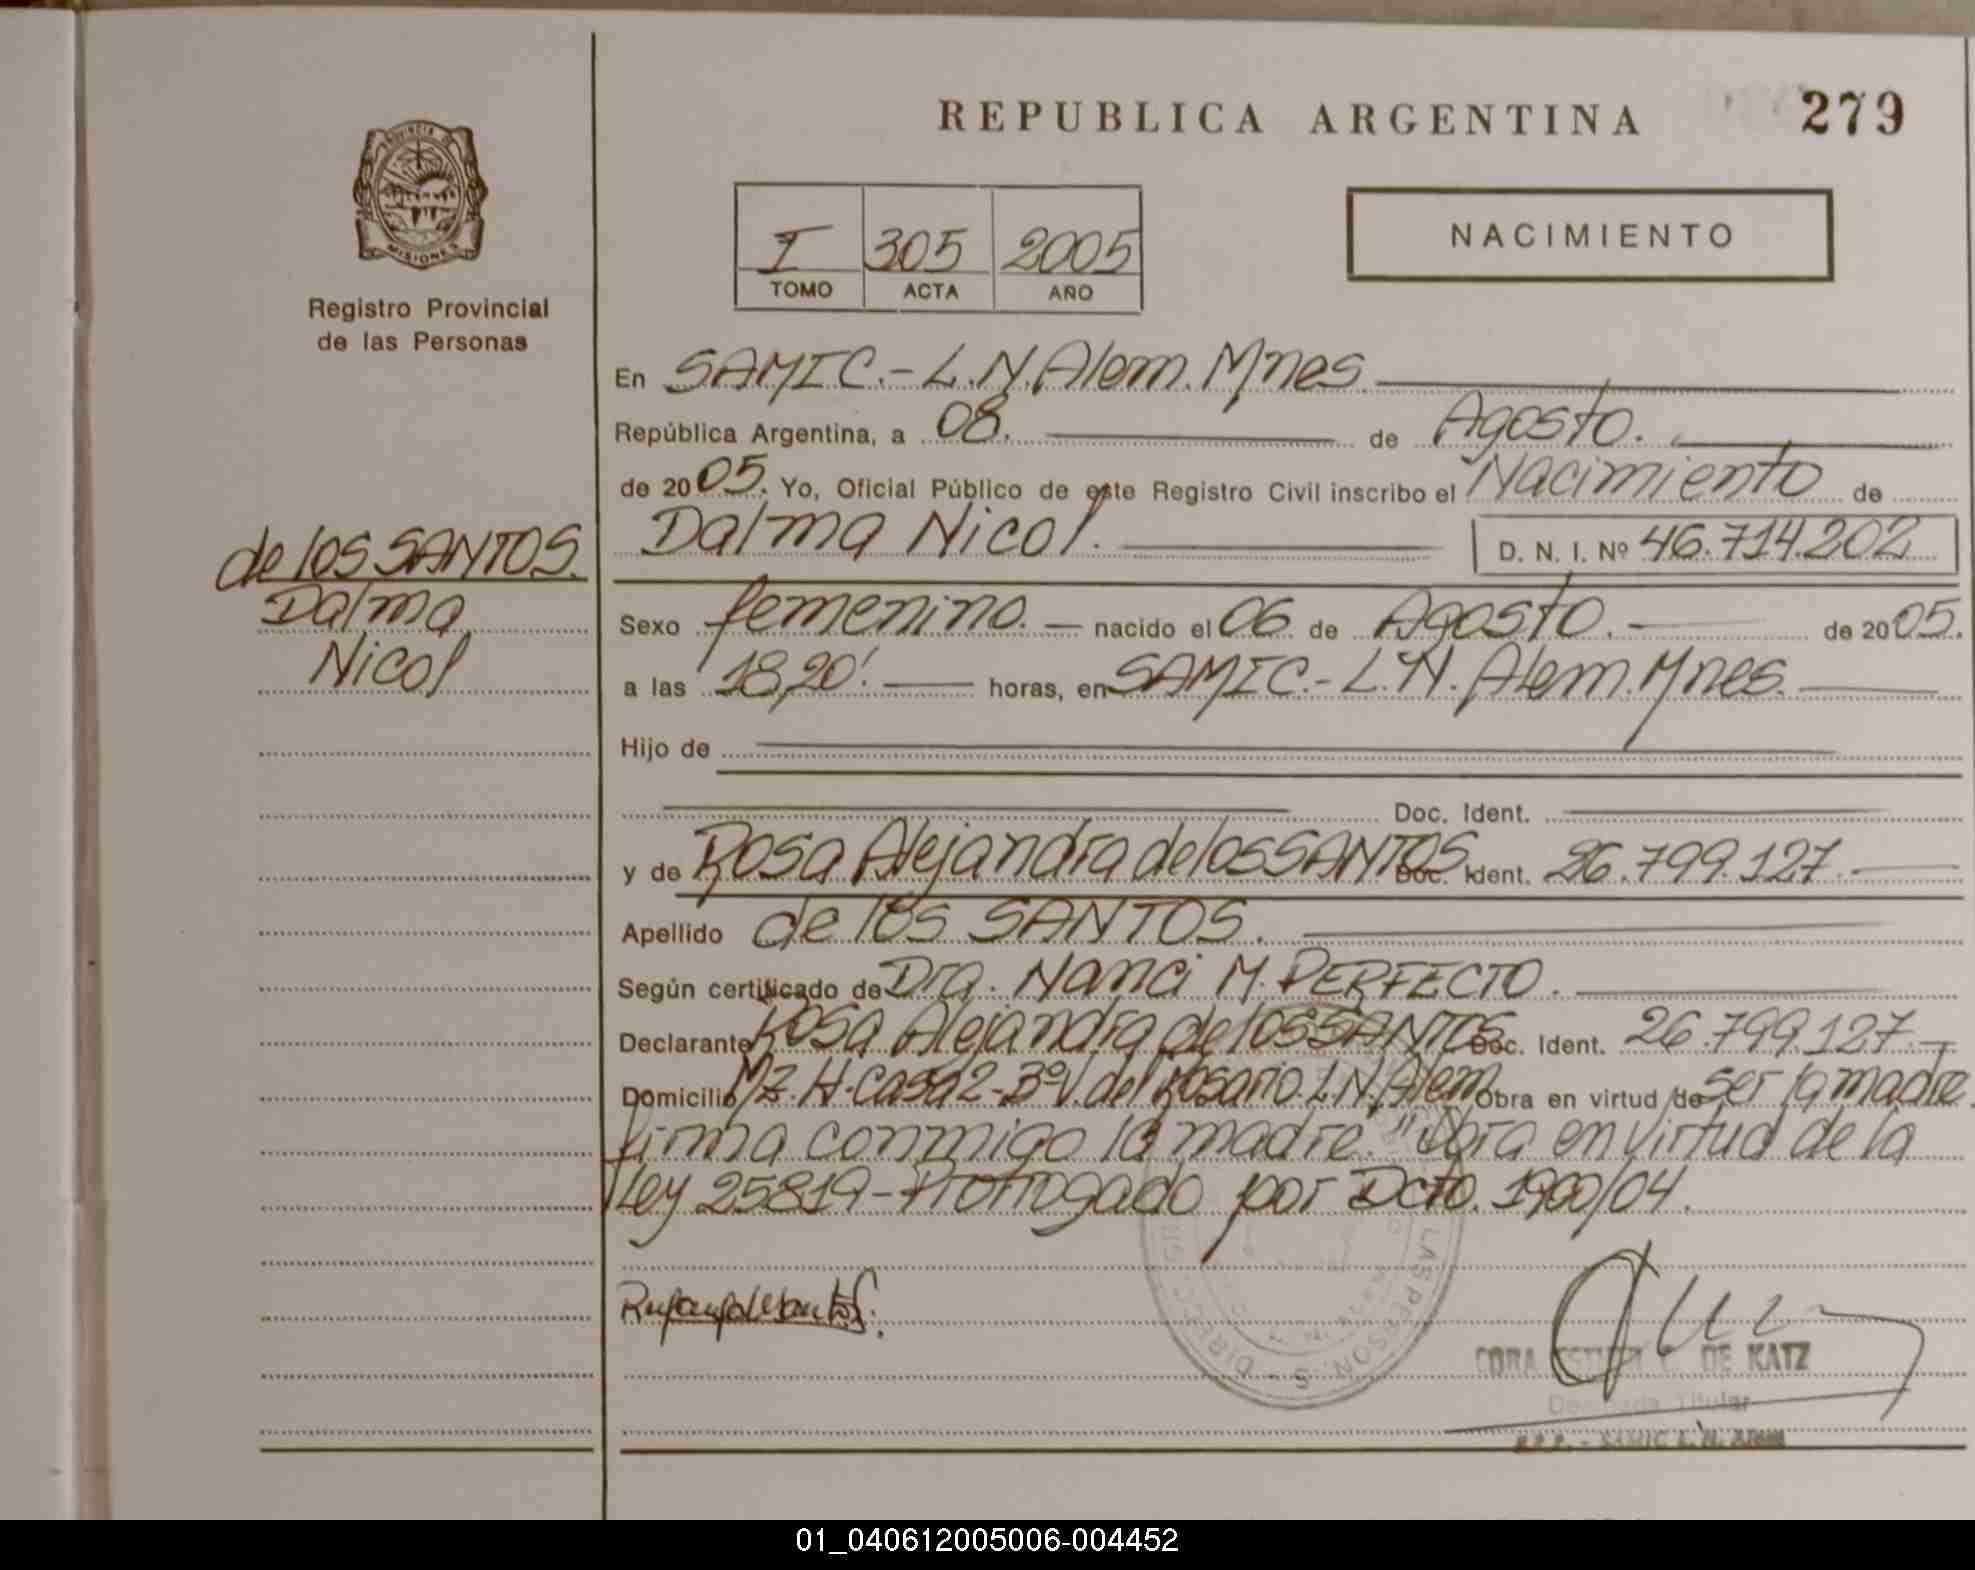 REPUBLICA ARGENTINA
279
PROVINCIA DE
MISIONES
Registro Provincial
de las Personas
I 305 2005
TOMO ACTA AÑO
NACIMIENTO
En SAMIC.- L.N. Alem. Mnes.
República Argentina, a 08. de Agosto.
de 2005. Yo, Oficial Público de este Registro Civil inscribo el Nacimiento de
Dalma Nicol. D. N. I. Nº 46.714.202
de los SANTOS.
Dalma
Nicol
Sexo femenino. nacido el 06 de Agosto. de 2005.
a las 18,20' horas, en SAMIC.- L.N. Alem. Mnes.
Hijo de
Doc. Ident.
y de Rosa Alejandra de los SANTOS Doc. Ident. 26.799.127.
Apellido de los SANTOS.
Según certificado de Dra. Nanci M. PERFECTO.
Declarante Rosa Alejandra de los SANTOS Doc. Ident. 26.799.127.-
Domicilio Mz. H-Casa 2-Bº V. del Rosario. L.N. Alem Obra en virtud de ser la madre.
firma conmigo la madre. "Obra en virtud de la
Ley 25819-Prorrogado por Dcto. 1900/04.
CORA C. DE KATZ
Titular
R.P.P. - SAMIC L. N. ALEM
01_040612005006-004452